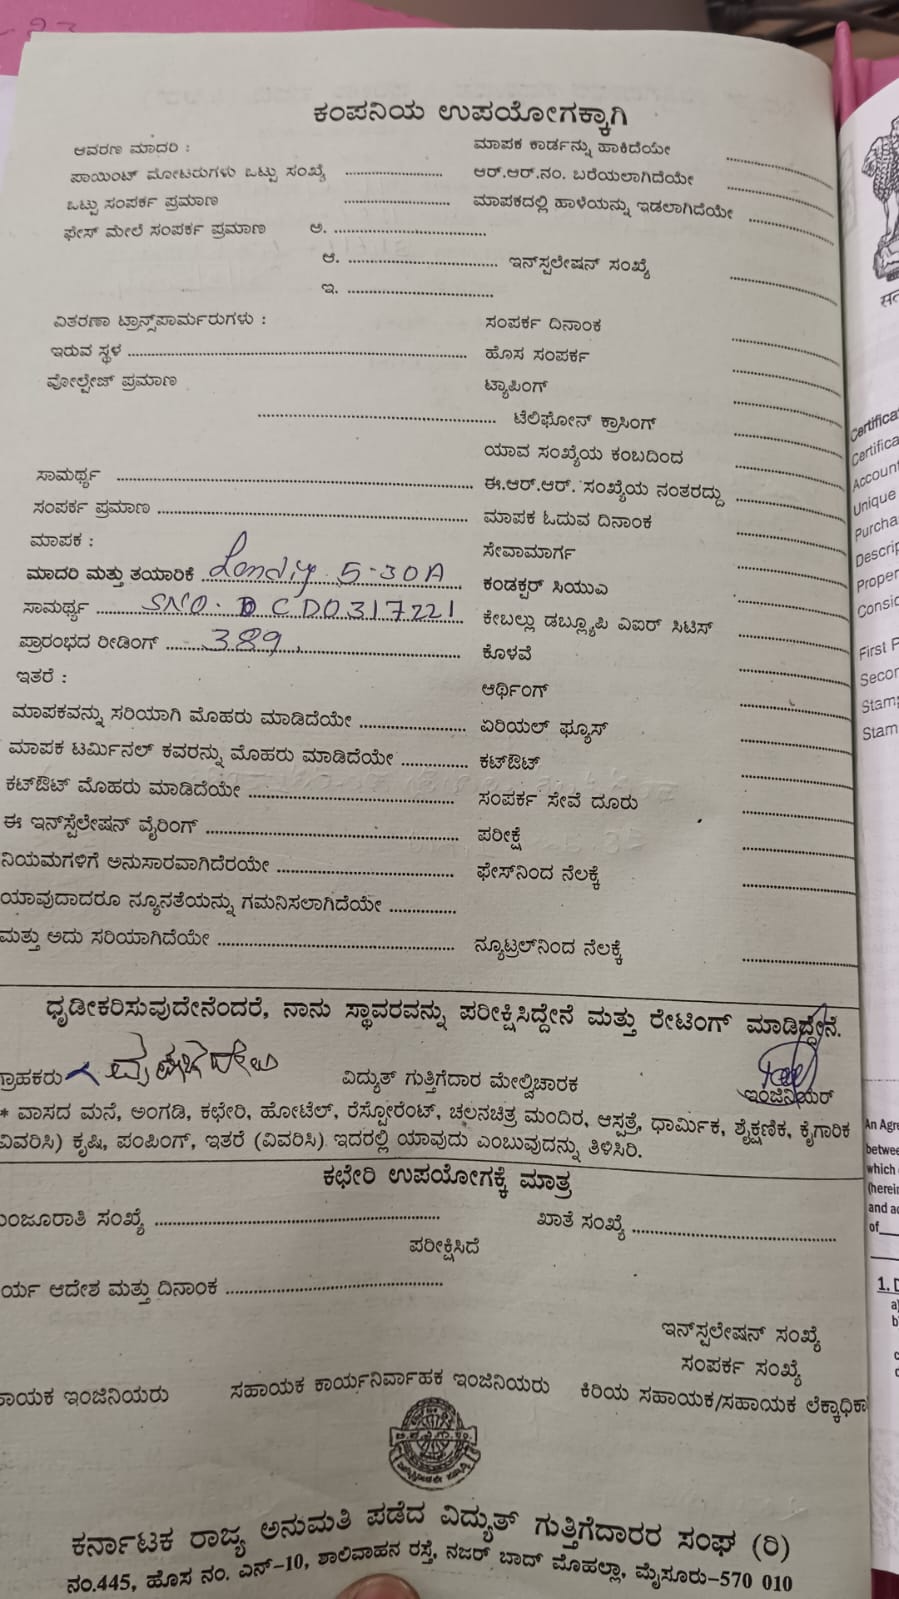 ಕಂಪನಿಯ ಉಪಯೋಗಕ್ಕಾಗಿ
ಆವರಣ ಮಾದರಿ : ಮಾಪಕ ಕಾರ್ಡನ್ನು ಹಾಕಿದೆಯೇ
ಪಾಯಿಂಟ್ ಮೋಟರುಗಳು ಒಟ್ಟು ಸಂಖ್ಯೆ ಆರ್.ಆರ್.ನಂ. ಬರೆಯಲಾಗಿದೆಯೇ
ಒಟ್ಟು ಸಂಪರ್ಕ ಪ್ರಮಾಣ ಮಾಪಕದಲ್ಲಿ ಹಾಳೆಯನ್ನು ಇಡಲಾಗಿದೆಯೇ
ಫೇಸ್ ಮೇಲೆ ಸಂಪರ್ಕ ಪ್ರಮಾಣ ಅ.
ಆ. ಇನ್‌ಸ್ಟಲೇಷನ್ ಸಂಖ್ಯೆ
ಇ.
ವಿತರಣಾ ಟ್ರಾನ್ಸ್‌ಪಾರ್ಮರುಗಳು : ಸಂಪರ್ಕ ದಿನಾಂಕ
ಇರುವ ಸ್ಥಳ ಹೊಸ ಸಂಪರ್ಕ
ವೋಲ್ಟೇಜ್ ಪ್ರಮಾಣ ಟ್ಯಾಪಿಂಗ್
ಟೆಲಿಫೋನ್ ಕ್ರಾಸಿಂಗ್
ಯಾವ ಸಂಖ್ಯೆಯ ಕಂಬದಿಂದ
ಸಾಮರ್ಥ್ಯ ಈ.ಆರ್.ಆರ್. ಸಂಖ್ಯೆಯ ನಂತರದ್ದು
ಸಂಪರ್ಕ ಪ್ರಮಾಣ ಮಾಪಕ ಓದುವ ದಿನಾಂಕ
ಮಾಪಕ : ಸೇವಾಮಾರ್ಗ
ಮಾದರಿ ಮತ್ತು ತಯಾರಿಕೆ 5-30A ಕಂಡಕ್ಟರ್ ಸಿಯುಎ
ಸಾಮರ್ಥ್ಯ SNO. DCD0317221 ಕೇಬಲ್ಲು ಡಬ್ಲ್ಯೂಪಿ ಎಐರ್ ಸಿಟಿಸ್
ಪ್ರಾರಂಭದ ರೀಡಿಂಗ್ 389 ಕೊಳವೆ
ಇತರೆ : ಆರ್ಥಿಂಗ್
ಮಾಪಕವನ್ನು ಸರಿಯಾಗಿ ಮೊಹರು ಮಾಡಿದೆಯೇ ಏರಿಯಲ್ ಫ್ಯೂಸ್
ಮಾಪಕ ಟರ್ಮಿನಲ್ ಕವರನ್ನು ಮೊಹರು ಮಾಡಿದೆಯೇ ಕಟ್‌ಔಟ್
ಕಟ್‌ಔಟ್ ಮೊಹರು ಮಾಡಿದೆಯೇ ಸಂಪರ್ಕ ಸೇವೆ ದೂರು
ಈ ಇನ್‌ಸ್ಟೆಲೇಷನ್ ವೈರಿಂಗ್ ಪರೀಕ್ಷೆ
ನಿಯಮಗಳಿಗೆ ಅನುಸಾರವಾಗಿದೆರಯೇ ಫೇಸ್‌ನಿಂದ ನೆಲಕ್ಕೆ
ಯಾವುದಾದರೂ ನ್ಯೂನತೆಯನ್ನು ಗಮನಿಸಲಾಗಿದೆಯೇ
ಮತ್ತು ಅದು ಸರಿಯಾಗಿದೆಯೇ ನ್ಯೂಟ್ರಲ್‌ನಿಂದ ನೆಲಕ್ಕೆ
ಧೃಡೀಕರಿಸುವುದೇನೆಂದರೆ, ನಾನು ಸ್ಥಾವರವನ್ನು ಪರೀಕ್ಷಿಸಿದ್ದೇನೆ ಮತ್ತು ರೇಟಿಂಗ್ ಮಾಡಿದ್ದೇನೆ.
ಗ್ರಾಹಕರು ವಿದ್ಯುತ್ ಗುತ್ತಿಗೆದಾರ ಮೇಲ್ವಿಚಾರಕ ಇಂಜಿನಿಯರ್
* ವಾಸದ ಮನೆ, ಅಂಗಡಿ, ಕಛೇರಿ, ಹೋಟೆಲ್, ರೆಸ್ಟೋರೆಂಟ್, ಚಲನಚಿತ್ರ ಮಂದಿರ, ಆಸ್ಪತ್ರೆ, ಧಾರ್ಮಿಕ, ಶೈಕ್ಷಣಿಕ, ಕೈಗಾರಿಕ
ವಿವರಿಸಿ) ಕೃಷಿ, ಪಂಪಿಂಗ್, ಇತರೆ (ವಿವರಿಸಿ) ಇದರಲ್ಲಿ ಯಾವುದು ಎಂಬುವುದನ್ನು ತಿಳಿಸಿರಿ.
ಕಛೇರಿ ಉಪಯೋಗಕ್ಕೆ ಮಾತ್ರ
ಂಜೂರಾತಿ ಸಂಖ್ಯೆ ಖಾತೆ ಸಂಖ್ಯೆ
ಪರೀಕ್ಷಿಸಿದೆ
ರ್ಯ ಆದೇಶ ಮತ್ತು ದಿನಾಂಕ
ಇನ್‌ಸ್ಟಲೇಷನ್ ಸಂಖ್ಯೆ
ಸಂಪರ್ಕ ಸಂಖ್ಯೆ
ಾಯಕ ಇಂಜಿನಿಯರು ಸಹಾಯಕ ಕಾರ್ಯನಿರ್ವಾಹಕ ಇಂಜಿನಿಯರು ಕಿರಿಯ ಸಹಾಯಕ/ಸಹಾಯಕ ಲೆಕ್ಕಾಧಿಕಾ
ಕರ್ನಾಟಕ ರಾಜ್ಯ ಅನುಮತಿ ಪಡೆದ ವಿದ್ಯುತ್ ಗುತ್ತಿಗೆದಾರರ ಸಂಘ (ರಿ)
ನಂ.445, ಹೊಸ ನಂ. ಎನ್-10, ಶಾಲಿವಾಹನ ರಸ್ತೆ, ನಜರ್ ಬಾದ್ ಮೊಹಲ್ಲಾ, ಮೈಸೂರು-570 010
ಸತ
Certifica
Certifica
Account
Unique
Purcha
Descrip
Proper
Consid
First P
Secon
Stamp
Stam
An Agre
betwee
which
(herein
and a
of
1. D
a)
b